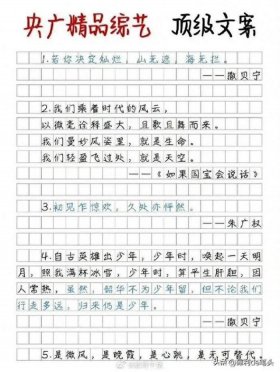 央广精品综艺 顶级文案
1.若你决定灿烂,山无遮,海无拦。
——撒贝宁
2.我们乘着时代的风云,
以微毫诠释盛大,且歌且舞而来。
我们曼妙风姿里,就是生命。
我们轻盈飞过处,就是天空。
——《如果国宝会说话》
3.初见乍惊欢,久处亦怦然。
——朱广权
4.自古英雄出少年,少年时,唤起一天明
月,照我满怀冰雪,少年时,算平生肝胆,因
人常热,虽然,韶华不为少年留,但不论我们
行走多远,归来仍是少年。
——撒贝宁
5.是微风,是晚霞,是心跳,是无可替代。